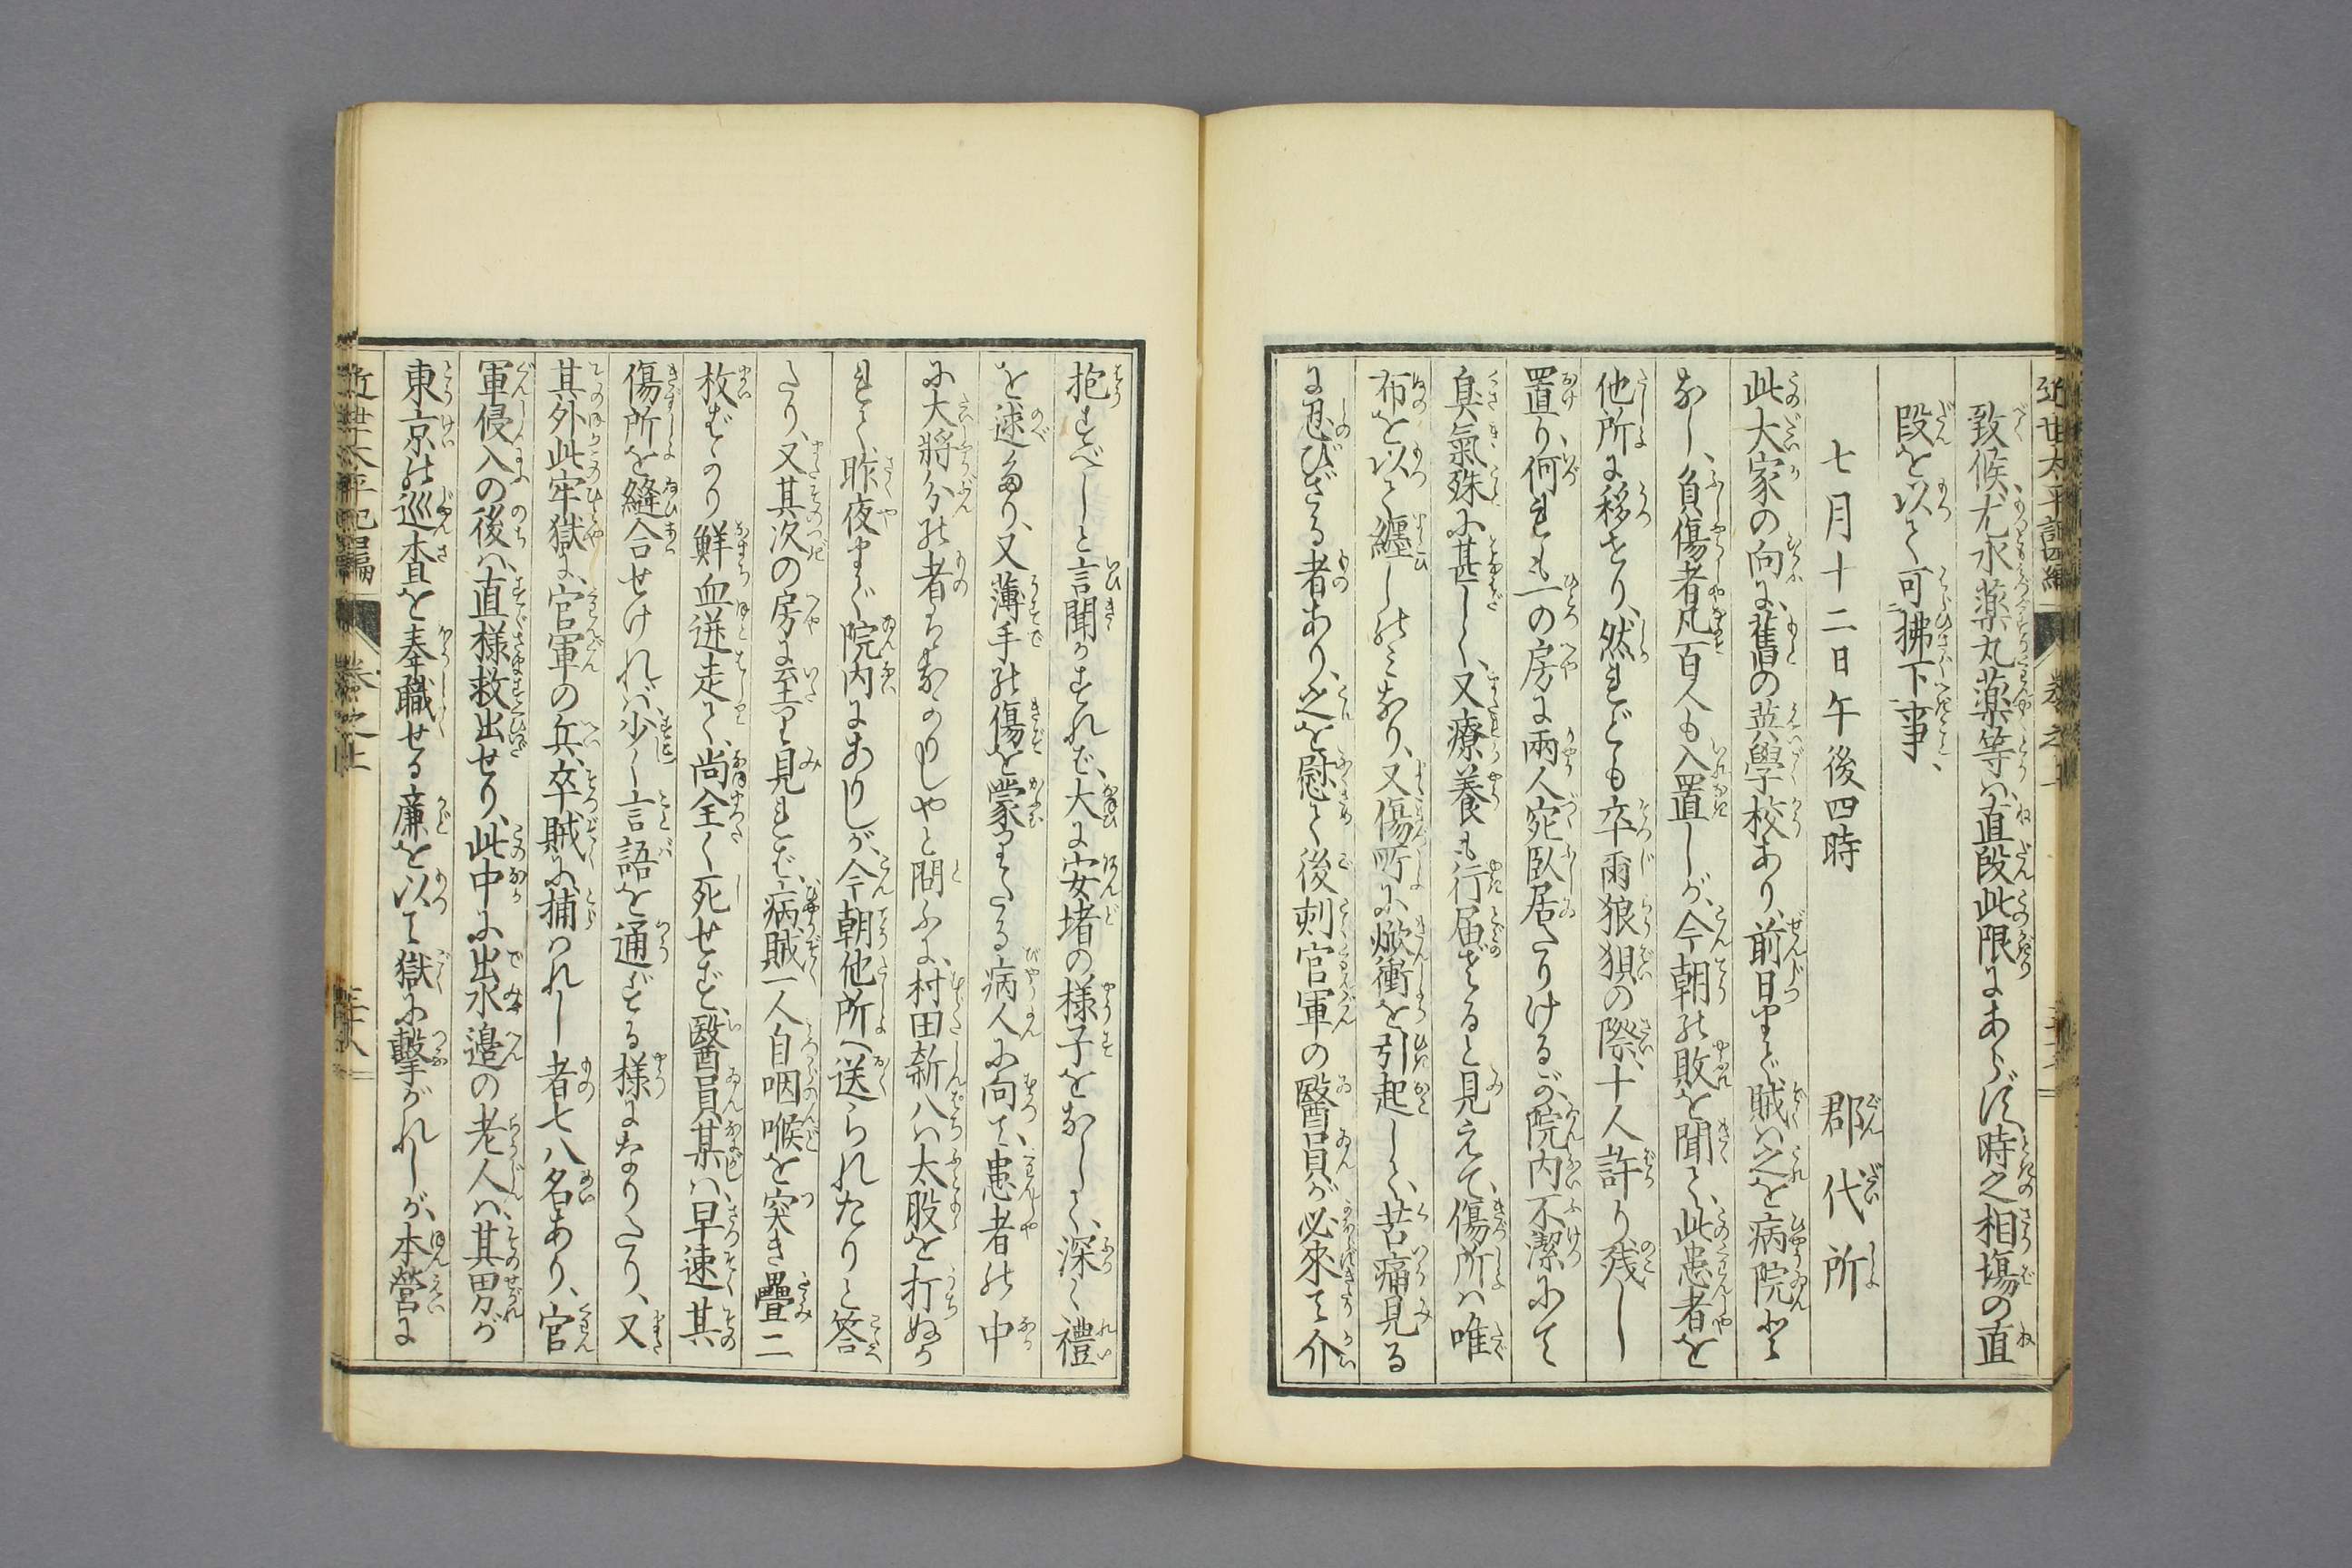 致候、尤水薬丸薬等ハ直段此限にあらず、時之相塲の直
段を以て可拂下事、
七月十二日午後四時　郡代所
此大家の向に、舊の英學校あり、前日まで賊ハ之を病院と
なし、負傷者凡百人も入置しが、今朝の敗を聞て、此患者を
他所に移せり、然れども卒爾狼狽の際、十人許り残し
置り、何れも一の房に兩人宛臥居たりけるが、院内不潔にて
臭氣殊に甚しく、又療養も行届ざると見えて、傷所ハ唯
布を以て纏しのミなり、又傷所に焮衝を引起しく、苦痛見る
に忍びざる者あり、之を慰て後刻官軍の醫員が必來て介
抱すべしと言聞かすれバ、大に安堵の様子をなして、深く禮
を述たり、又薄手の傷を蒙りたる病人に向て、患者の中
に大將分の者ハなかりしやと問ふに、村田新八ハ太股を打ぬか
れて、昨夜まで院内にありしが、今朝他所へ送られたりと答
たり、又其次の房に至り見れバ、病賊一人自咽喉を突き疊二
枚ばかり鮮血迸走て、尚全く死せず、醫員某ハ早速其
傷所を縫合せけれバ、少く言語を通ずる様になりたり、又
其外此牢獄に、官軍の兵卒賊に捕われし者七八名あり、官
軍侵入の後ハ、直様救出せり、此中に出水邉の老人ハ、其男が
東京の巡査を奉職せる廉を以て獄に擊がれしが、本營に
近世太平記四編　卷之上